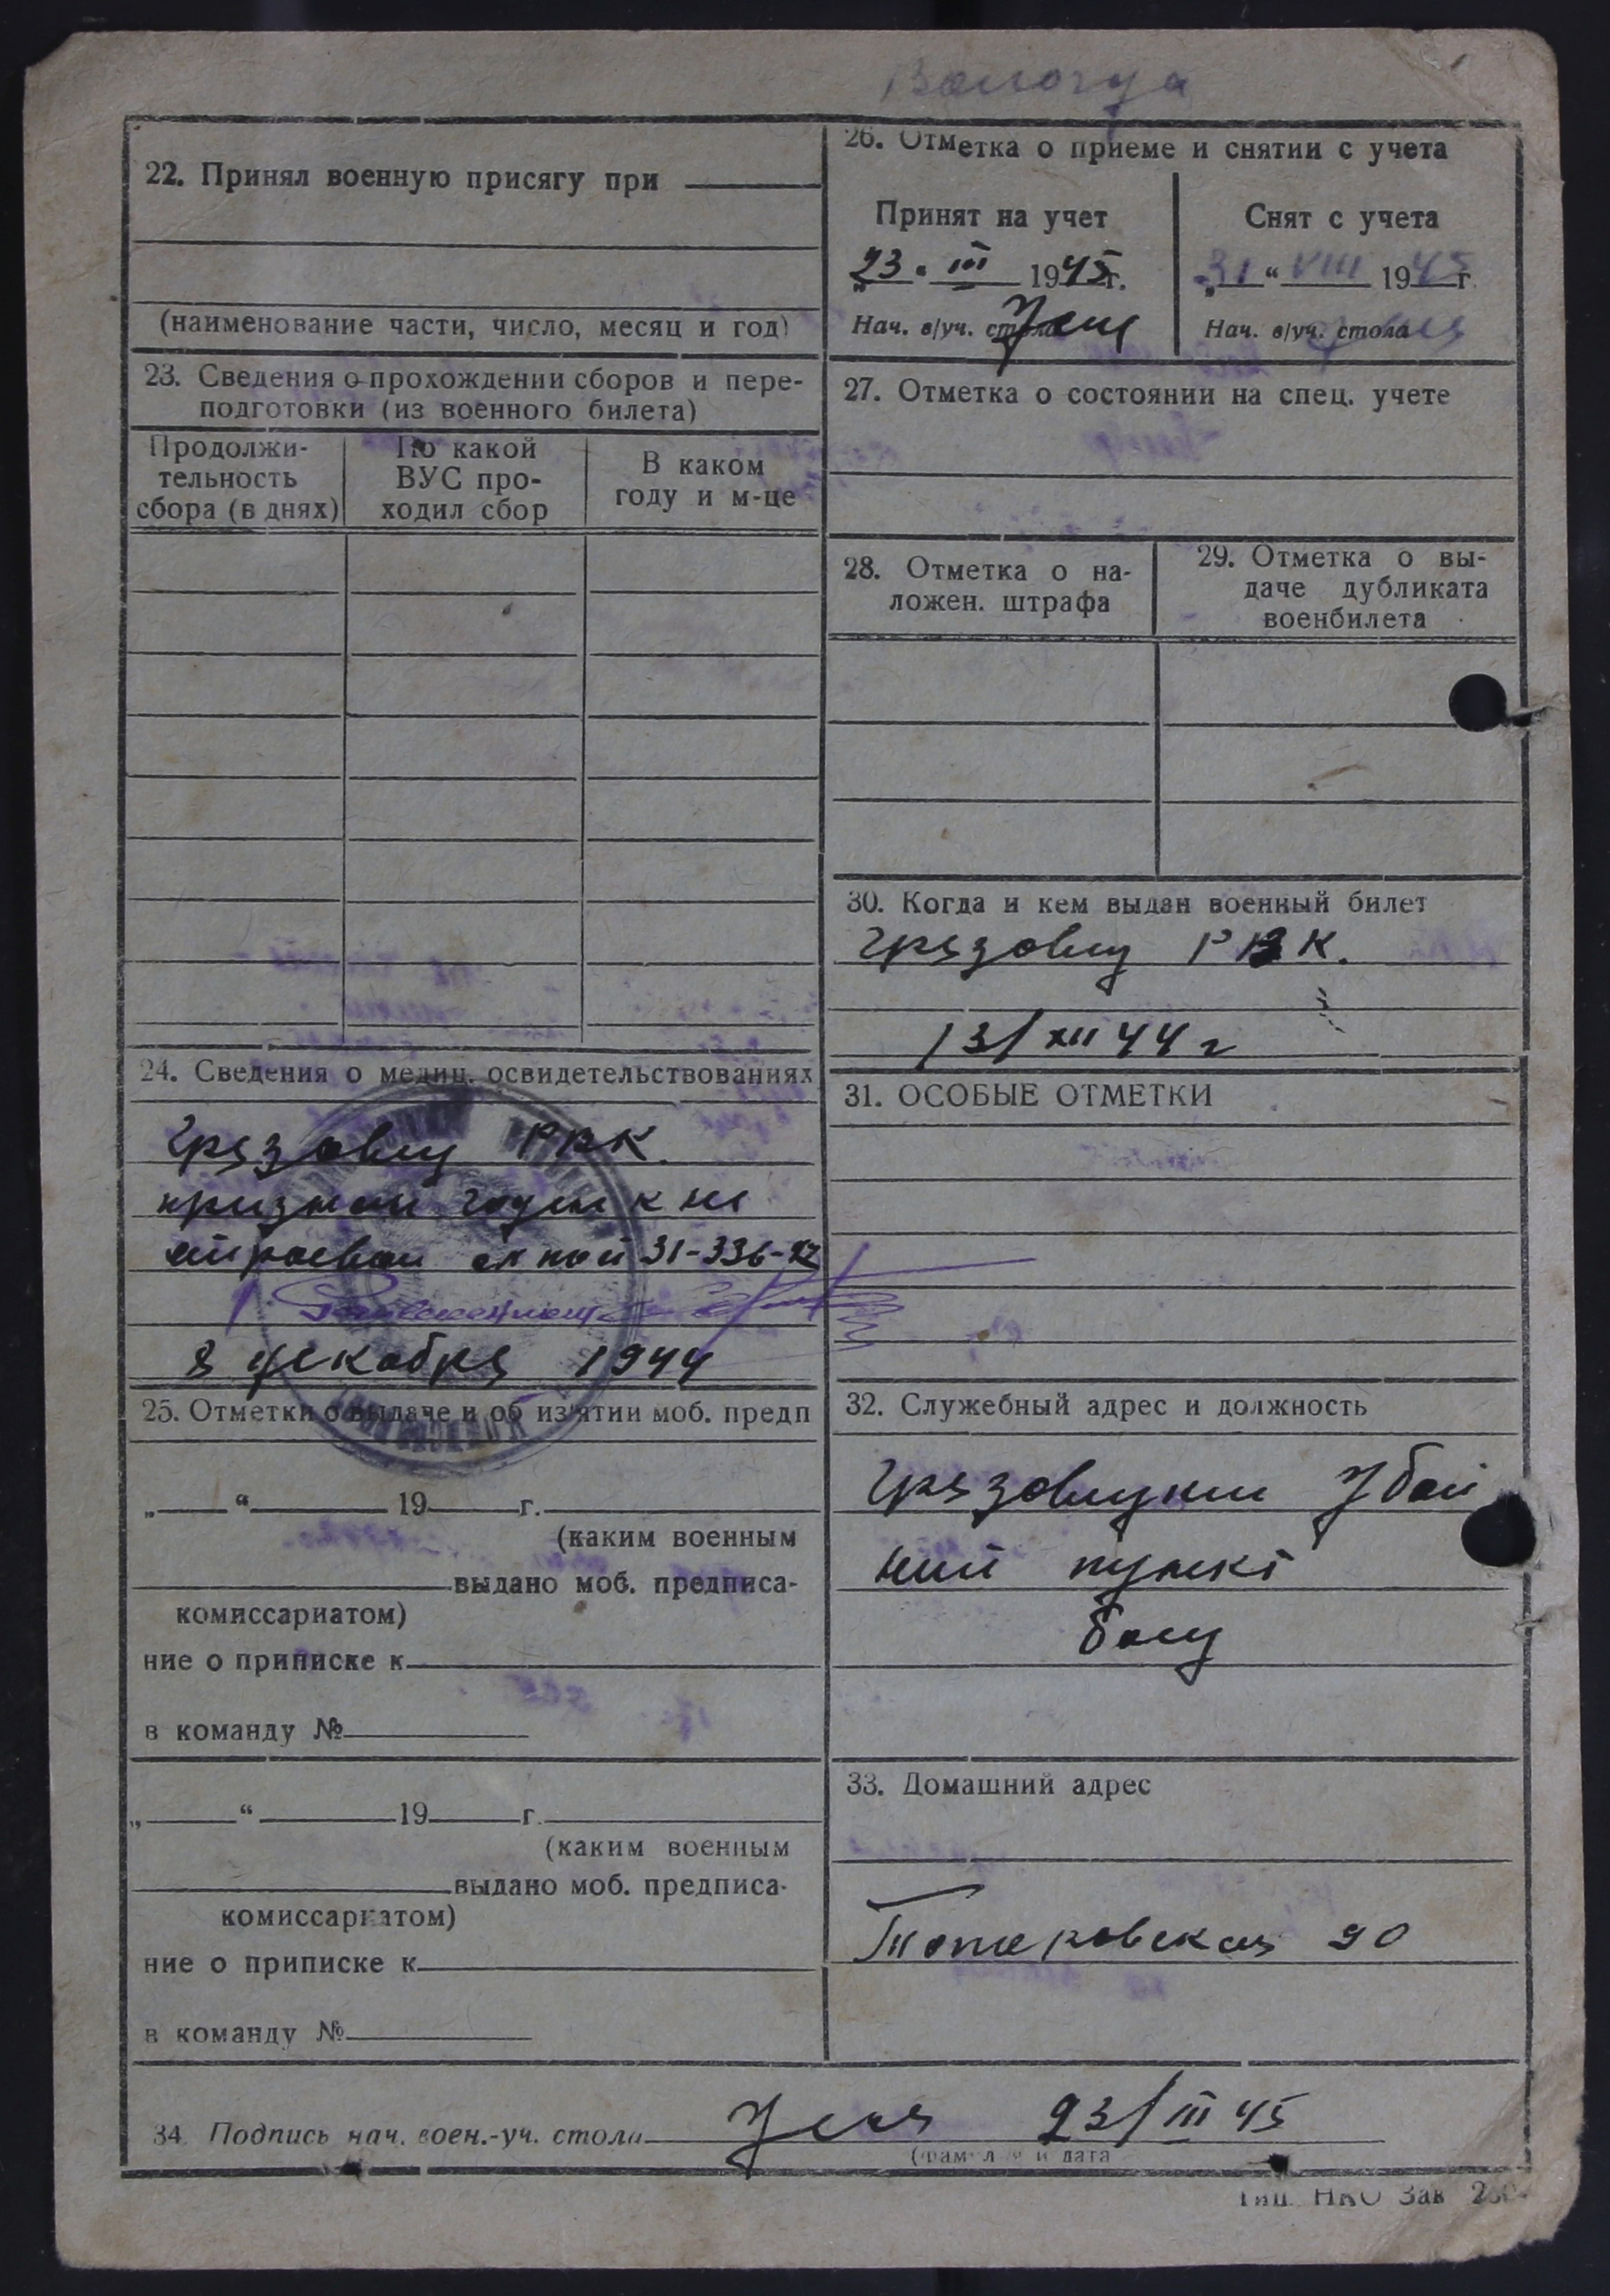 Вологда
22. Принял военную присягу при
(наименование части, число, месяц и год)
23. Сведения о прохождении сборов и пере-
подготовки (из военного билета)
Продолжи-
тельность
сбора (в днях)
По какой
ВУС про-
ходил сбор
В каком
году и м-це
24. Сведения о медиц. освидетельствованиях
Грязовец РВК.
признан годен к не
строевой 31-336-42
8 декабря 1944
25. Отметки о выдаче и об из'ятии моб. предп
„ “ 19 г.
(каким военным
выдано моб. предписа-
комиссариатом)
ние о приписке к
в команду №
„ “ 19 г.
(каким военным
выдано моб. предписа-
комиссариатом)
ние о приписке к
в команду №
26. Отметка о приеме и снятии с учета
Принят на учет
„23“ III 1945г.
Нач. в/уч. стола
Снят с учета
„31“ VIII 1945г.
Нач. в/уч. стола
27. Отметка о состоянии на спец. учете
28. Отметка о на-
ложен. штрафа
29. Отметка о вы-
даче дубликата
военбилета
30. Когда и кем выдан военный билет
Грязовец РВК.
13/XII 44 г
31. ОСОБЫЕ ОТМЕТКИ
32. Служебный адрес и должность
Грязовецкий Убой
ный пункт
боец
33. Домашний адрес
90
34 Подпись нач. воен.-уч. стола 23/III 45
(фамилия и дата
Тип. НКО Зак